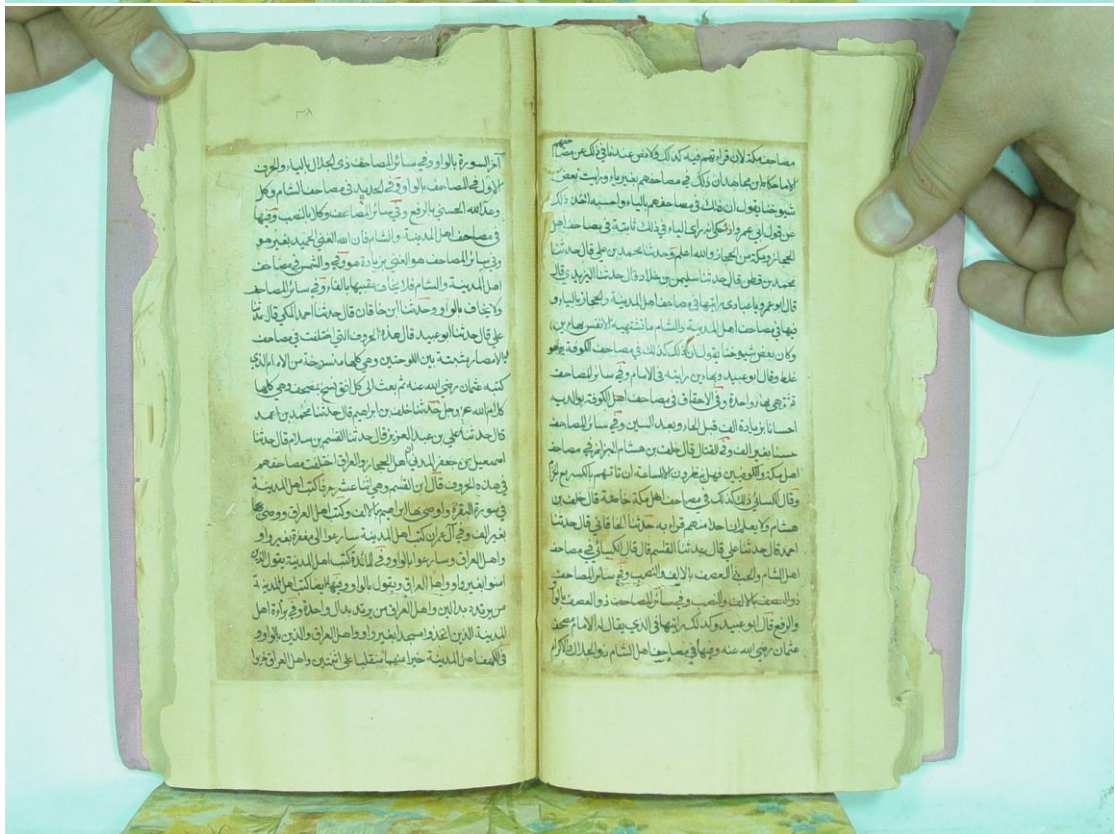 مصاحف مكة لان قراءتهم فيه كذلك ولا نص عندنا في ذلك عن مصاحفهم
الا ما حكاه ابن مجاهد ان ذلك في مصاحفهم بغير ياء ورايت بعض
شيوخنا يقول ان ذلك في مصاحفهم بالياء واحسبه اخذ ذلك
عن قول ابي عمرو اذ حكى انه راى الياء في ذلك ثابتة في مصاحف اهل
الحجاز ومكة من الحجاز والله اعلم وحدثنا محمد بن علي قال حدثنا
محمد بن قطن قال حدثنا سليمن بن خلاد قال حدثنا اليزيدي قال
قال ابو عمرو يا عبادي رايتها في مصاحف اهل المدينة والحجاز بالياء و
فيها في مصاحف اهل المدينة والشام ما تشتهيه الانفس بهاءين
وكان بعض شيوخنا يقول ان ذلك كذلك في مصاحف الكوفة وهو
غلط وقال ابو عبيد وبهاءين رايته في الامام وفي سائر المصاحف
تشتهي بهاء واحدة وفي الاحقاف في مصاحف اهل الكوفة بوالديه
احسانا بزيادة الف قبل الحاء وبعد السين وفي سائر المصاحف
حسنا بغير الف وفي القتال قال خلف بن هشام البزار في مصاحف
اهل مكة والكوفيين فهل ينظرون الا الساعة ان تاتهم بالكسر مع الجزم
وقال الكسائي ذلك كذلك في مصاحف اهل مكة خاصة قال خلف بن
هشام ولا نعلم ان احدا منهم قرا به حدثنا الخاقاني قال حدثنا
احمد قال حدثنا علي قال حدثنا القسم قال قال الكسائي في مصاحف
اهل الشام والحب ذا العصف بالالف والنصب وفي سائر المصاحف
ذو العصف بالالف والنصب وفي سائر المصاحف ذو العصف بالواو
والرفع قال ابو عبيد وكذلك رايتها في الذي يقال له الامام مصحف
عثمان رضي الله عنه وفيها في مصاحف اهل الشام ذو الجلال والاكرام
آخر السورة بالواو وفي سائر المصاحف ذي الجلال بالياء والحرف
الاول في المصاحف بالواو وفي الحديد في مصاحف الشام وكل
وعد الله الحسنى بالرفع وفي سائر المصاحف وكلا بالنصب وفيها
في مصاحف اهل المدينة والشام فان الله الغني الحميد بغير هو
وفي سائر المصاحف هو الغني بزيادة هو وفي والشمس في مصاحف
اهل المدينة والشام فلا يخاف عقبيها بالفاء وفي سائر المصاحف
ولا يخاف بالواو وحدثنا ابن خاقان قال حدثنا احمد المكي قال حدثنا
علي قال حدثنا ابو عبيد قال هذه الحروف التي اختلفت في مصاحف
الامصار مثبتة بين اللوحتين وهي كلها منسوخة من الامام الذي
كتبه عثمان رضي الله عنه ثم بعث الى كل افق نسخ بمصحف وهي كلها
كلام الله عز وجل حدثنا خلف بن ابراهيم قال حدثنا محمد بن احمد
قال حدثنا علي بن عبد العزيز قال حدثنا القسم بن سلام قال حدثنا
اسمعيل بن جعفر المدني ان اهل الحجاز والعراق اختلفت مصاحفهم
في هذه الحروف قال ابن القسم وهي اثنا عشر حرفا كتب اهل المدينة
في سورة البقرة واوصى بها ابراهيم بالالف وكتب اهل العراق ووصى بها
بغير الف وفي آل عمران كتب اهل المدينة سارعوا الى مغفرة بغير واو
واهل العراق وسارعوا بالواو وفي المائدة كتب اهل المدينة يقول الذين
امنوا بغير واو واهل العراق ويقول بالواو وفيها ايضا كتب اهل المدينة
من يرتدد بدالين واهل العراق من يرتد بدال واحدة وفي براءة اهل
المدينة الذين اتخذوا مسجدا بغير واو واهل العراق والذين بالواو و
في الكهف اهل المدينة خيرا منهما منقلبا على اثنتين واهل العراق خيرا